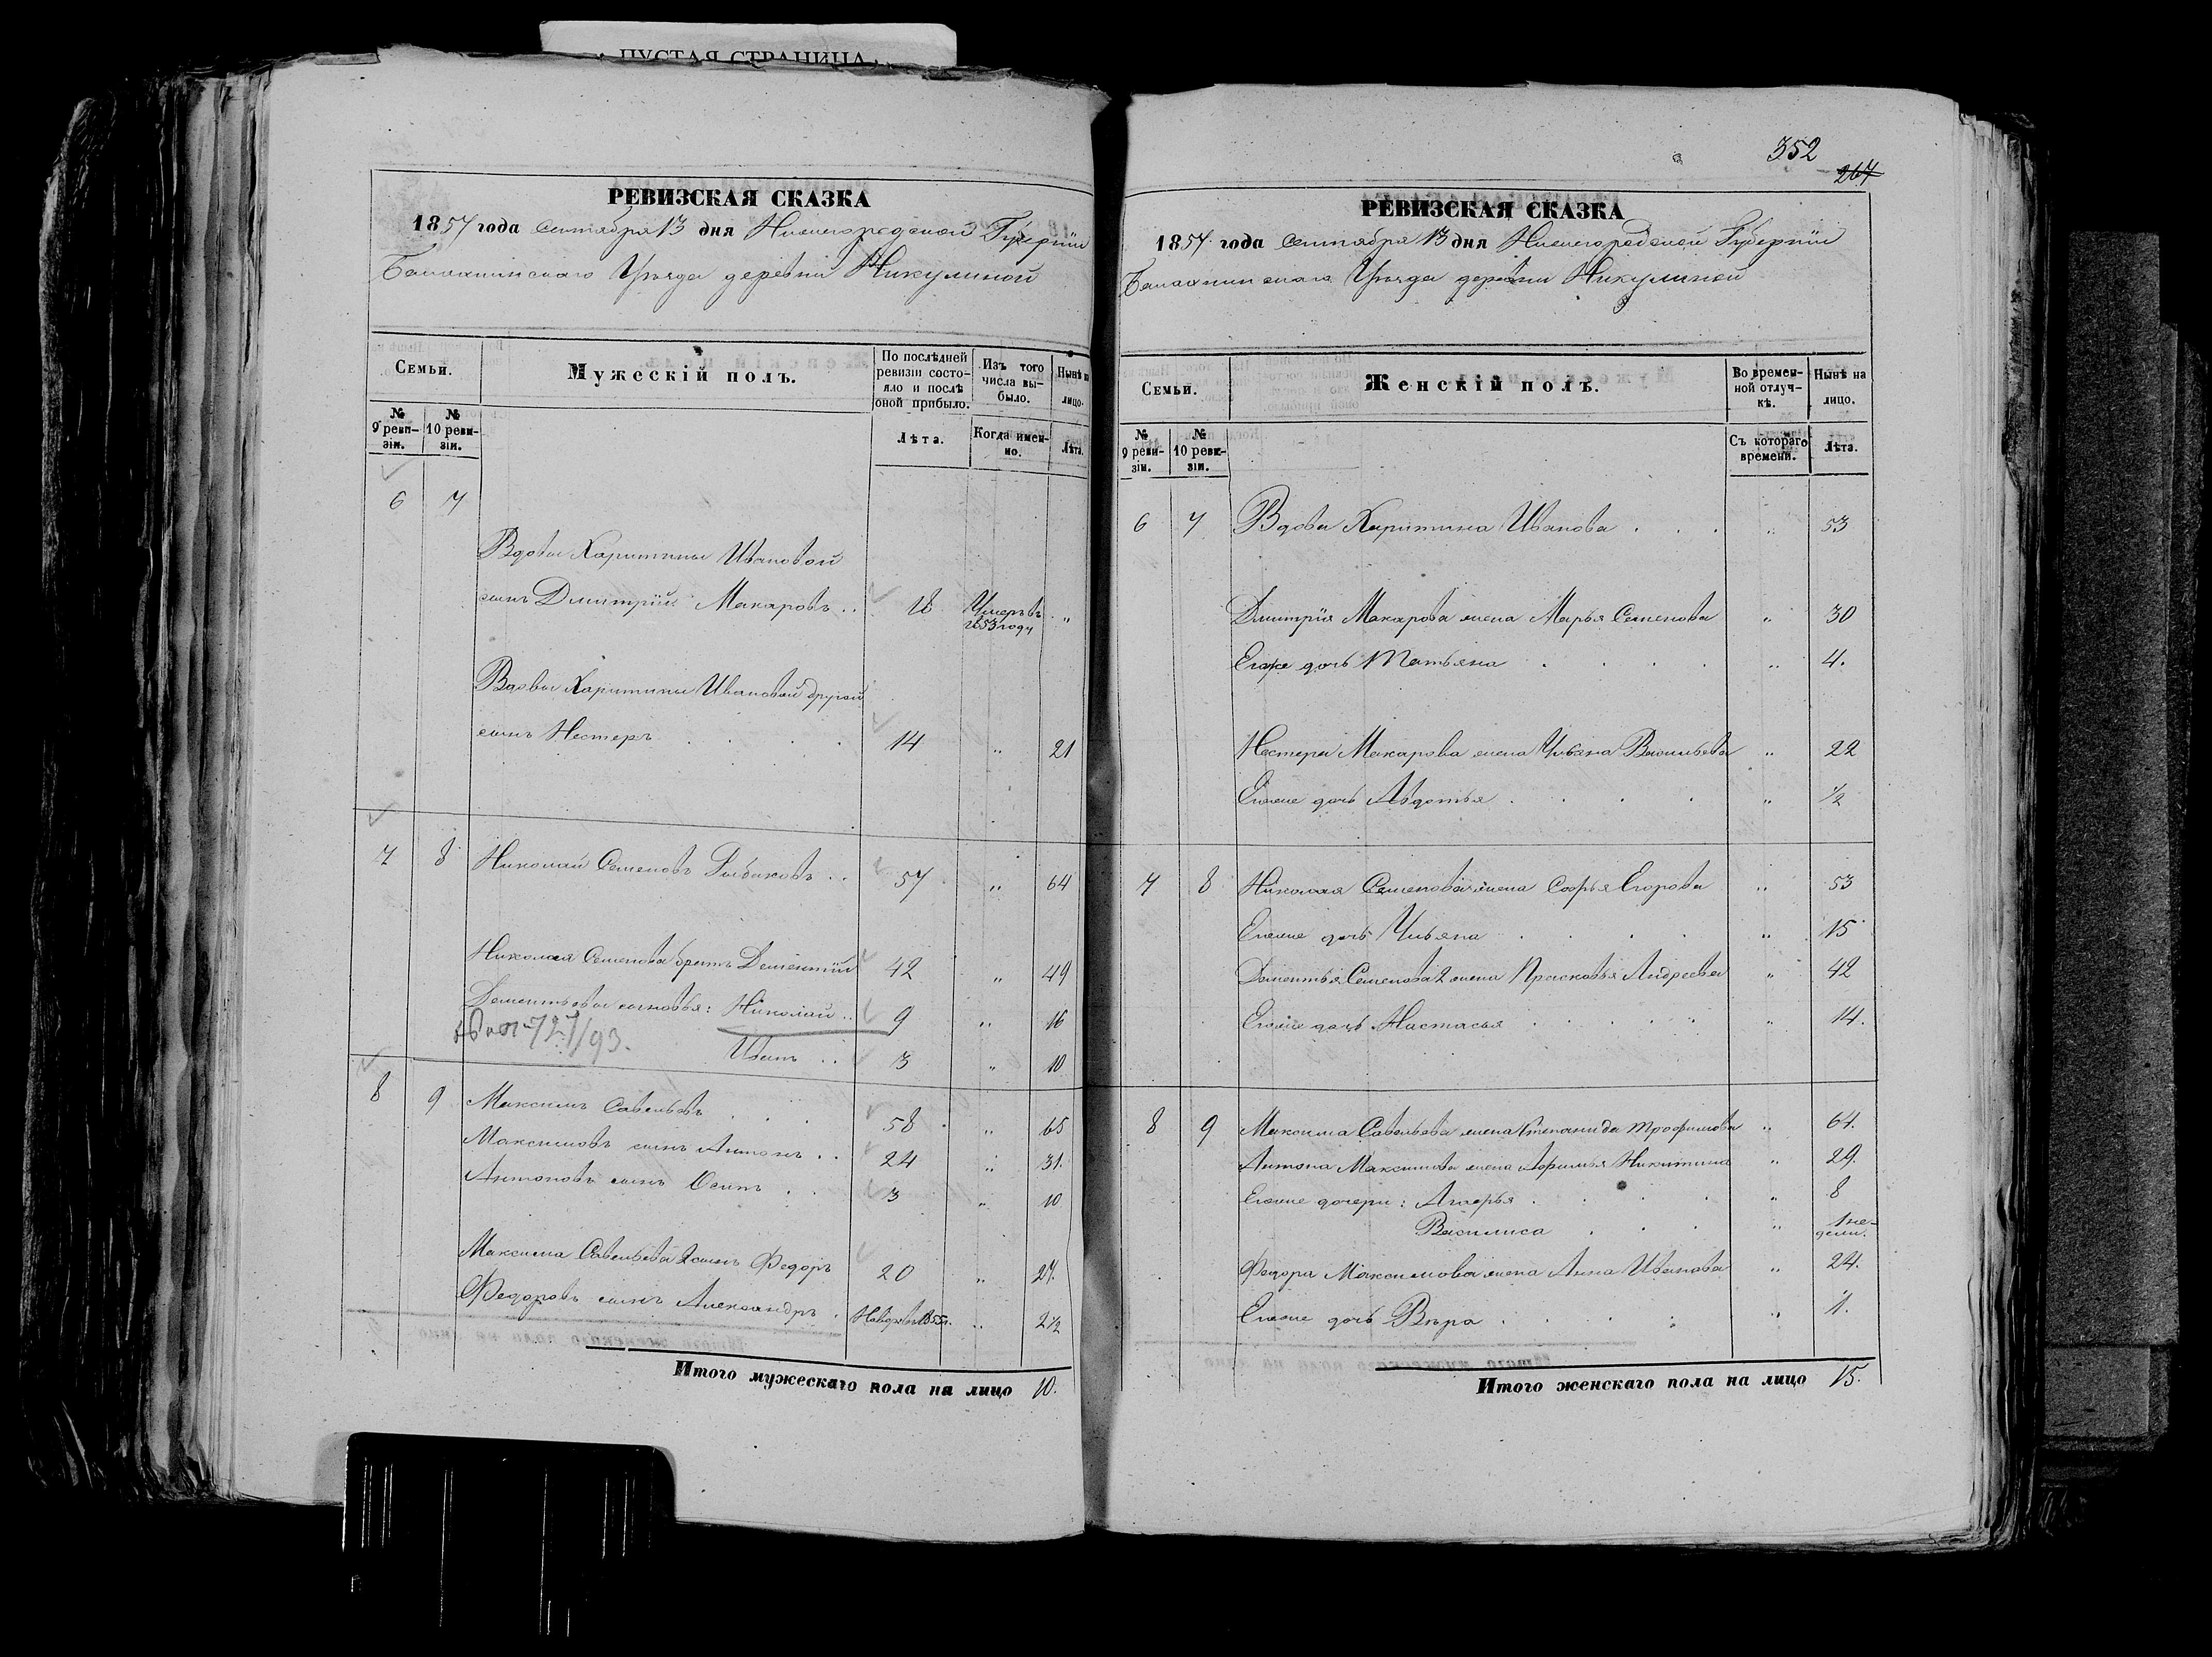 ПУСТАЯ СТРАНИЦА
РЕВИЗСКАЯ СКАЗКА
1857 года Сентября 13 дня Нижегородской Губернии
Балахнинскаго Уѣзда деревни Никулиной
Семьи.
Мужескій полъ.
По послѣдней ревизіи состояло и послѣ оной прибыло.
Изъ того числа выбыло.
Нынѣ на лицо.
№ 9 ревизіи.
№ 10 ревизіи.
Лѣта.
Когда именно.
Лѣта.
6 7
Вдовы Харитины Ивановой
сынъ Дмитрій Макаровъ .. 18 Умеръ въ 1853 году "
Вдовы Харитины Ивановой другой
сынъ Нестеръ . . . . 14 " 21
7 8 Николай Семеновъ Рыбаковъ .. 57 " 64
Николая Семенова братъ Дементій 42 " 49
Дементьевы сыновья: Николай .. 9 " 16
727/93.
Иванъ .. 3 " 10
8 9 Максимъ Савельевъ . . . 58 " 65
Максимовъ сынъ Антонъ .. 24 " 31.
Антоновъ сынъ Осипъ . . 3 " 10
Максима Савельева 2 сынъ Федоръ 20 " 27.
Федоровъ сынъ Александръ . Новорж. 1855 г. " 2 1/2
Итого мужескаго пола на лицо 10.
352
267
РЕВИЗСКАЯ СКАЗКА
1857 года Сентября 13 дня Нижегородской Губерніи
Балахнинскаго Уѣзда деревни Никулиной
Семьи.
Женскій полъ.
Во временной отлучкѣ.
Нынѣ на лицо.
№ 9 ревизіи.
№ 10 ревизіи.
Съ котораго времени.
Лѣта.
6 7 Вдова Харитина Иванова . . . " 53
Дмитрія Макарова жена Марья Семенова " 30
Егоже дочь Татьяна . . . . " 4.
Нестера Макарова жена Ульяна Васильева " 22
Егоже дочь Авдотья . . . . " 1/2
7 8 Николая Семенова жена Софья Егорова " 53
Егоже дочь Ульяна . . . . " 15
Дементья Семенова 2 жена Прасковья Андреева " 42
Егоже дочь Настасья . . . . " 14.
8 9 Максима Савельева жена Степанида Трофимова " 64.
Антона Максимова жена Афимья Никитина " 29.
Егоже дочери: . . . . " 8
Василиса . . . " 1 недели.
Федора Максимова жена Анна Иванова " 24.
Егоже дочь Вѣра . . . . " 1.
Итого женскаго пола на лицо 15.